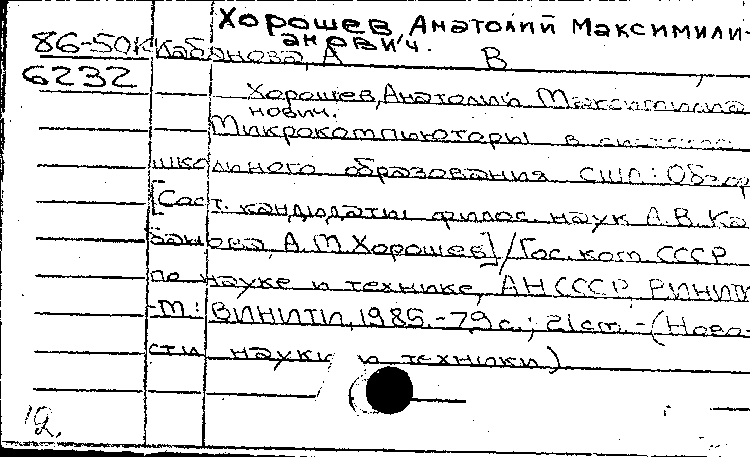 Хорошев Анатолий Максимили-
анович.
86-50к Кабанова, А В
6232
Хорошев, Анатолий Максимилиа
нович.
Микрокомпьютеры в системе
школьного образования США: Обзор
[Сост. кандидаты филос. наук А.В. Ка
банова, А.М. Хорошев] / Гос. ком СССР
по науке и технике, АН СССР, ВИНИТИ
-М.: ВИНИТИ, 1985.-79 с.; 21 см. - (Ново-
сти науки и техники)
12.